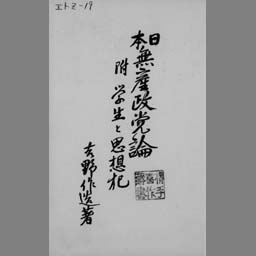 エトZ-19
日本無産政党論
附 学生と思想犯
吉野作造著